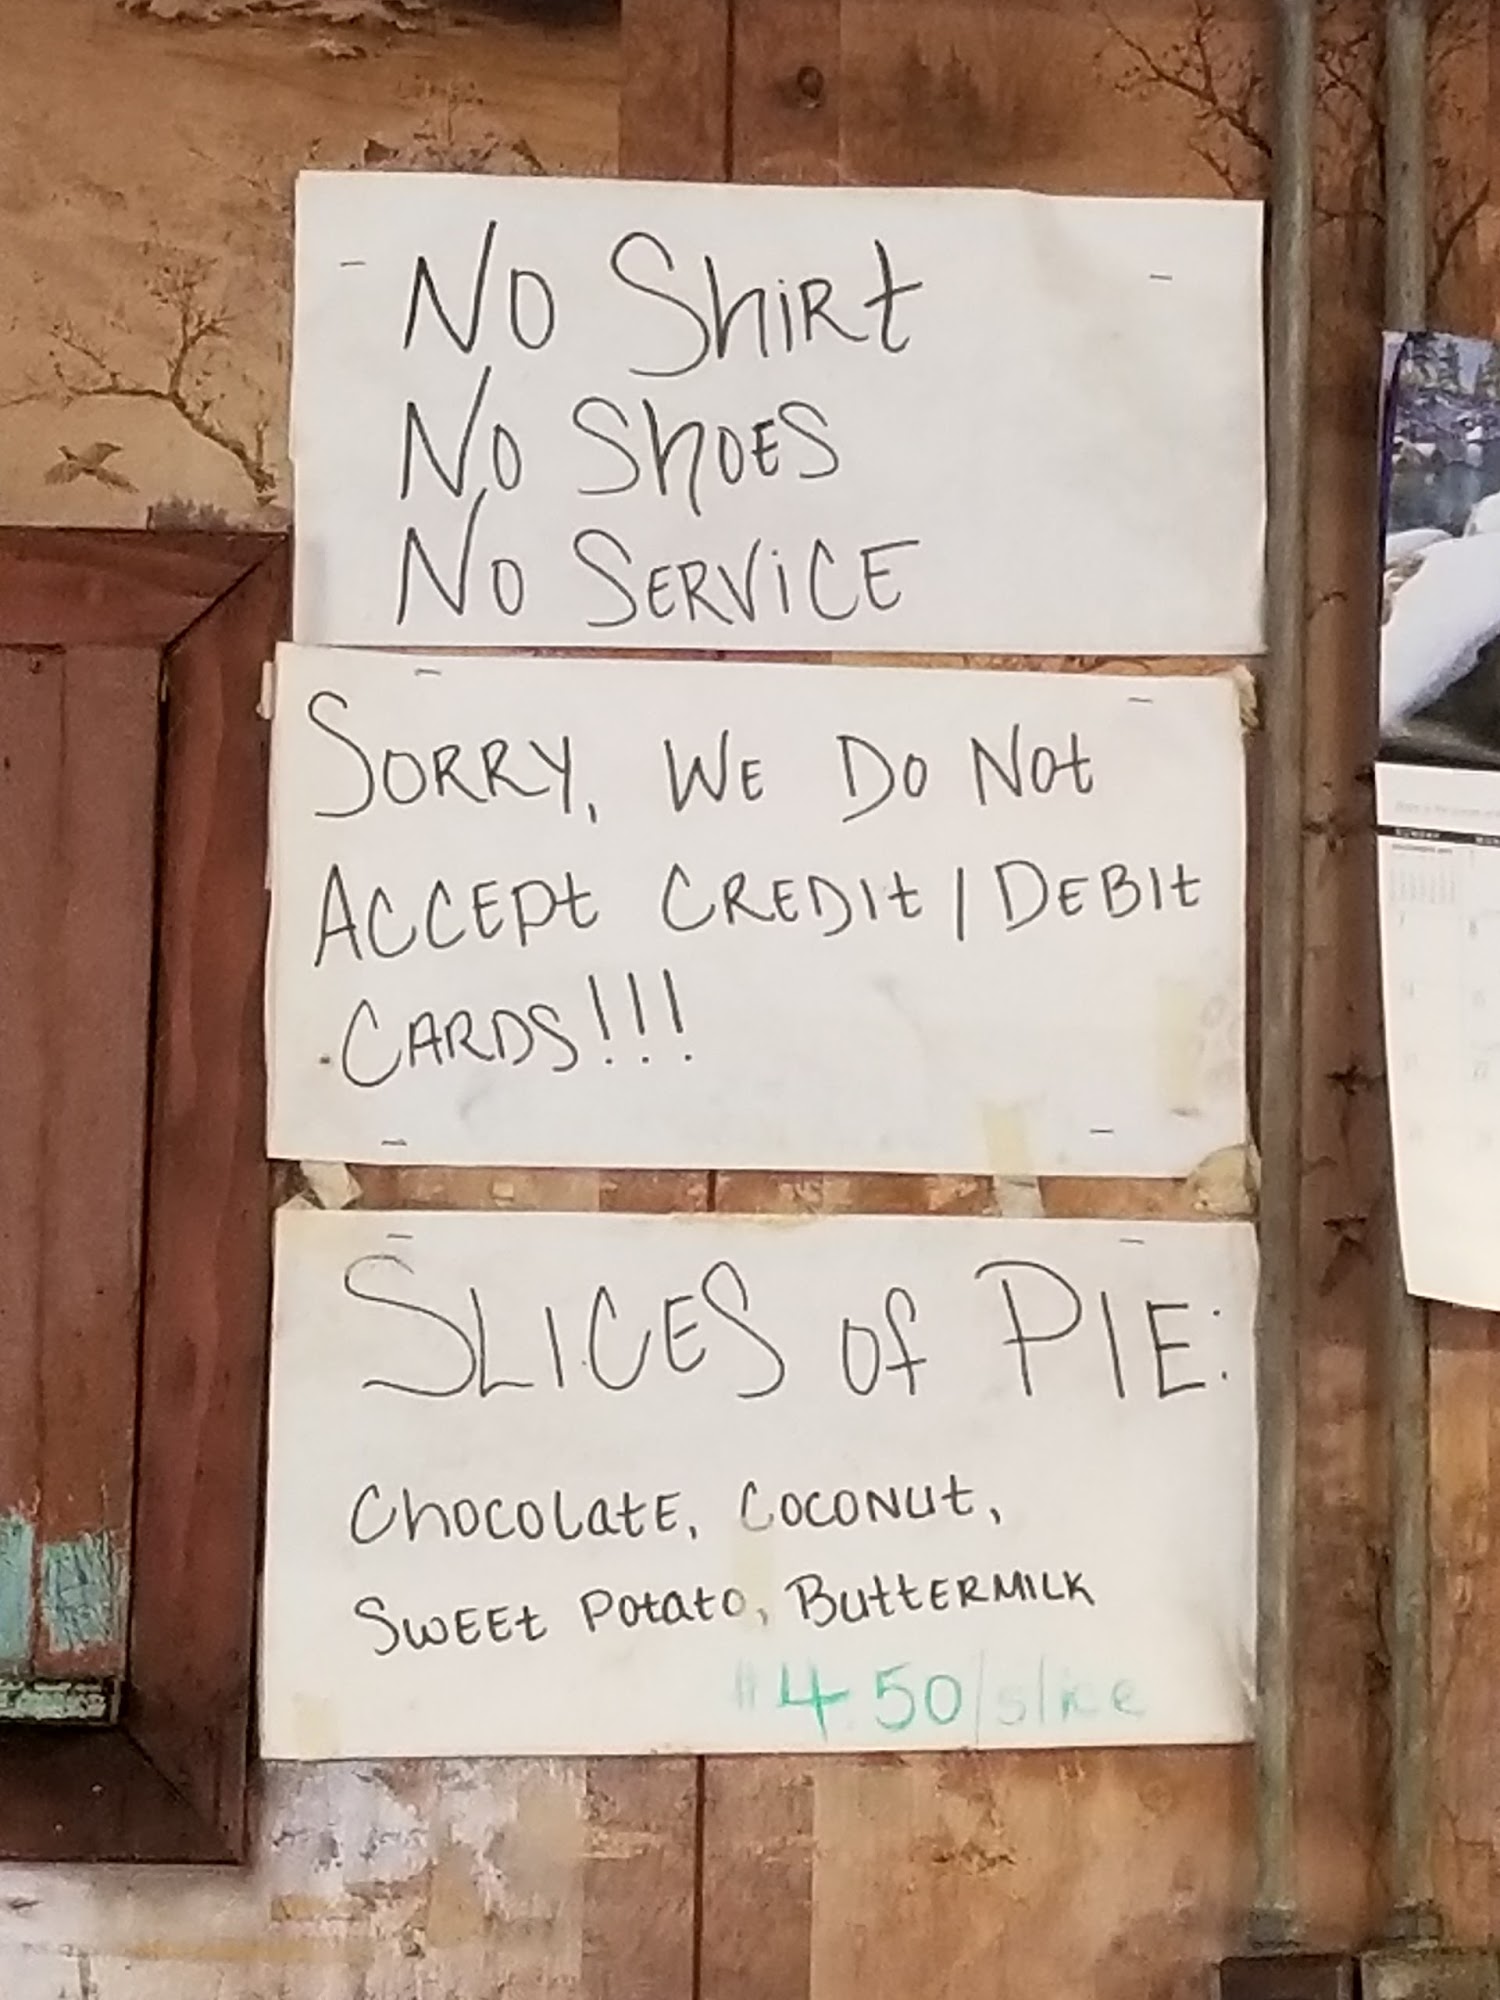 No Shirt
No Shoes
No Service
Sorry, We Do Not
Accept Credit/Debit
Cards!!!
Slices of Pie:
Chocolate, Coconut,
Sweet Potato, Buttermilk
$4.50/slice
SUNDAY